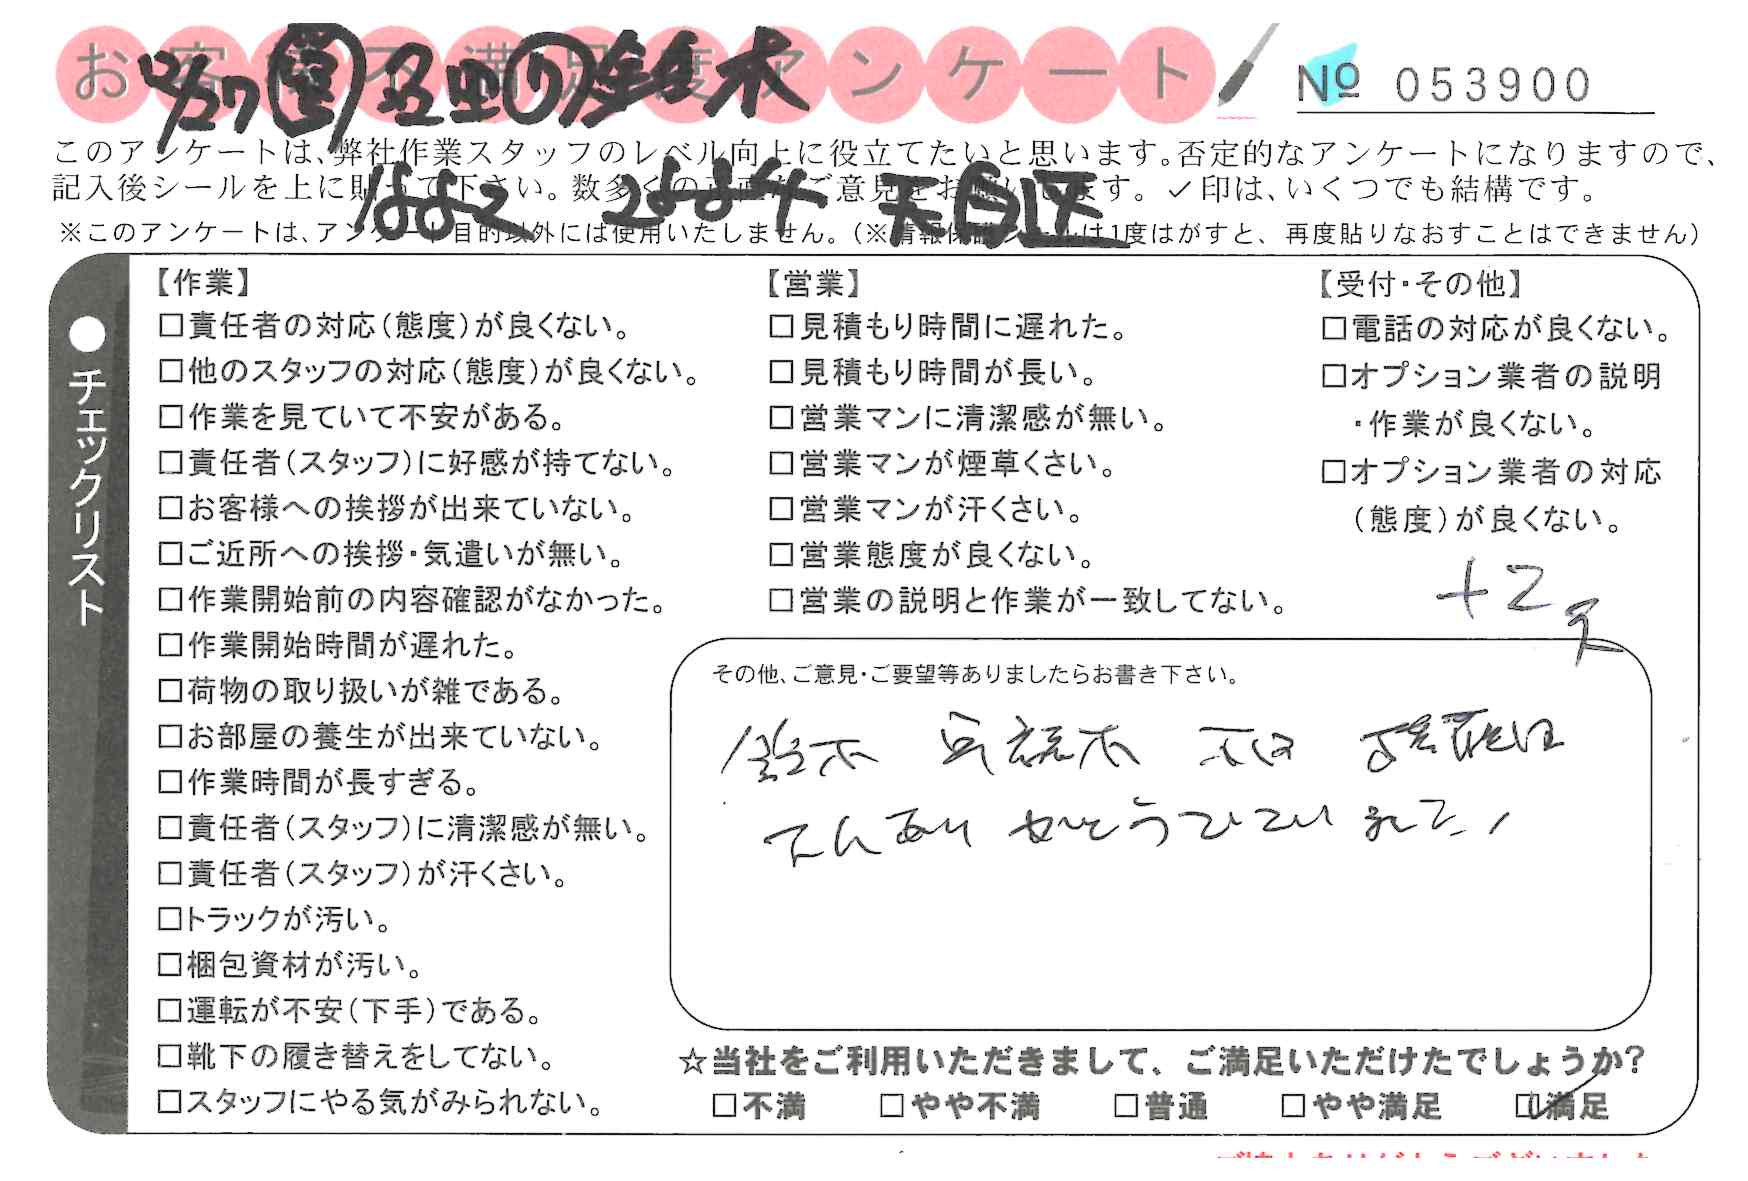 お客様不満足度アンケート
№ 053900
12/27 鈴木
このアンケートは、弊社作業スタッフのレベル向上に役立てたいと思います。否定的なアンケートになりますので、
記入後シールを上に貼って下さい。数多くの正直なご意見をお願いします。✓印は、いくつでも結構です。
天白区
※このアンケートは、アンケート目的以外には使用いたしません。(※情報保護シールは1度はがすと、再度貼りなおすことはできません)
●チェックリスト
【作業】
□責任者の対応(態度)が良くない。
□他のスタッフの対応(態度)が良くない。
□作業を見ていて不安がある。
□責任者(スタッフ)に好感が持てない。
□お客様への挨拶が出来ていない。
□ご近所への挨拶・気遣いが無い。
□作業開始前の内容確認がなかった。
□作業開始時間が遅れた。
□荷物の取り扱いが雑である。
□お部屋の養生が出来ていない。
□作業時間が長すぎる。
□責任者(スタッフ)に清潔感が無い。
□責任者(スタッフ)が汗くさい。
□トラックが汚い。
□梱包資材が汚い。
□運転が不安(下手)である。
□靴下の履き替えをしてない。
□スタッフにやる気がみられない。
【営業】
□見積もり時間に遅れた。
□見積もり時間が長い。
□営業マンに清潔感が無い。
□営業マンが煙草くさい。
□営業マンが汗くさい。
□営業態度が良くない。
□営業の説明と作業が一致してない。
【受付・その他】
□電話の対応が良くない。
□オプション業者の説明
・作業が良くない。
□オプション業者の対応
(態度)が良くない。
+2
その他、ご意見・ご要望等ありましたらお書き下さい。
鈴木
☆当社をご利用いただきまして、ご満足いただけたでしょうか?
□不満 □やや不満 □普通 □やや満足 ☑満足